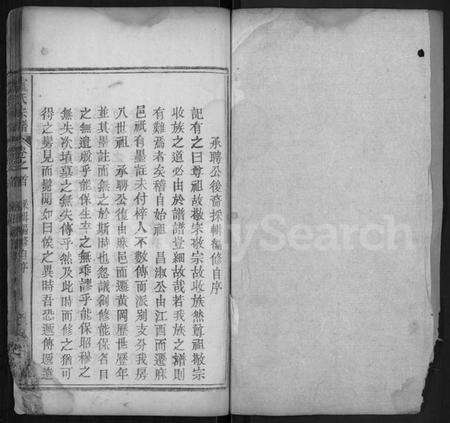 承聘公後裔採輯編修自序
記有之曰尊祖故敬宗敬宗故收族然尊祖敬宗
收族之道必由於譜譜豈細故哉若我族之譜則
有難焉者矣稽自始祖 昌淑公由江西而遷麻
邑祇有墨註未付梓人不數傳而派別支分我房
八世祖 承聘公復由麻邑而遷黃岡歷世歷年
並其墨註而無之於斯時也忽議剏修能保名目
之無遺漏乎能保生卒之無乖謬乎能保昭穆之
無失次墳墓之無失傳乎然及此時而修之猶可
得之見而聞如曰俟之異時吾恐遞傳遞遠
FamilySearch